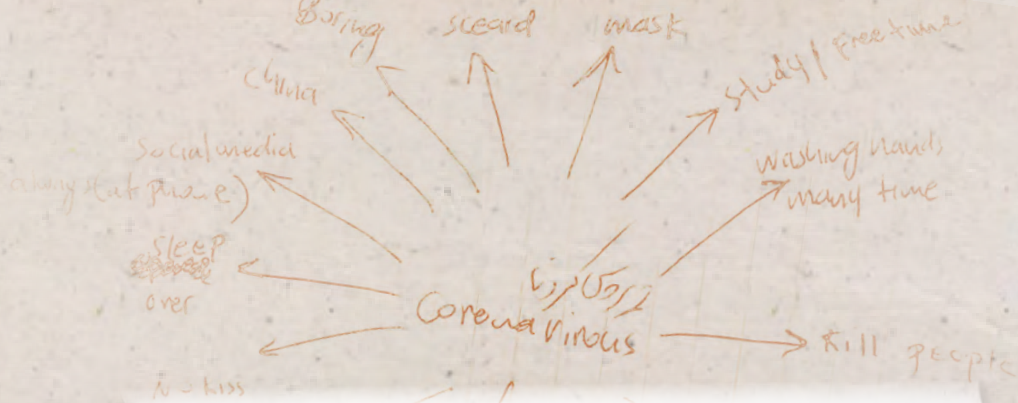 Boring
sceard
mask
Study / free time
China
Social media
phone)
washing hands
many time
sleep
over
زیروس کرونا
Corona virous
Kill people
No kiss